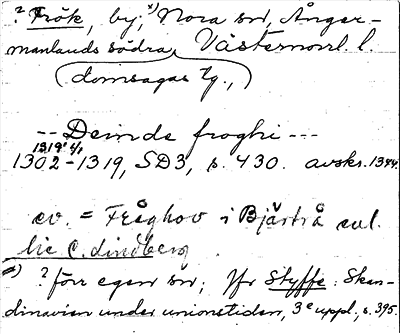 ? Frök, by, *) Nora sn, Ånger-
manlands södra, Västernorrl. l.
(domsagas tg.,)
-- Deinde froghi ---
1319 4/1
1302-1319, SD3, s. 430. avskr. 1344.
ev. = Fröghov i Bjärtrå enl.
lic C. Lindberg
*) ? förr egen sn; Jfr Styffe. Skan-
dinavien under unionstiden, 3e uppl., s. 395.